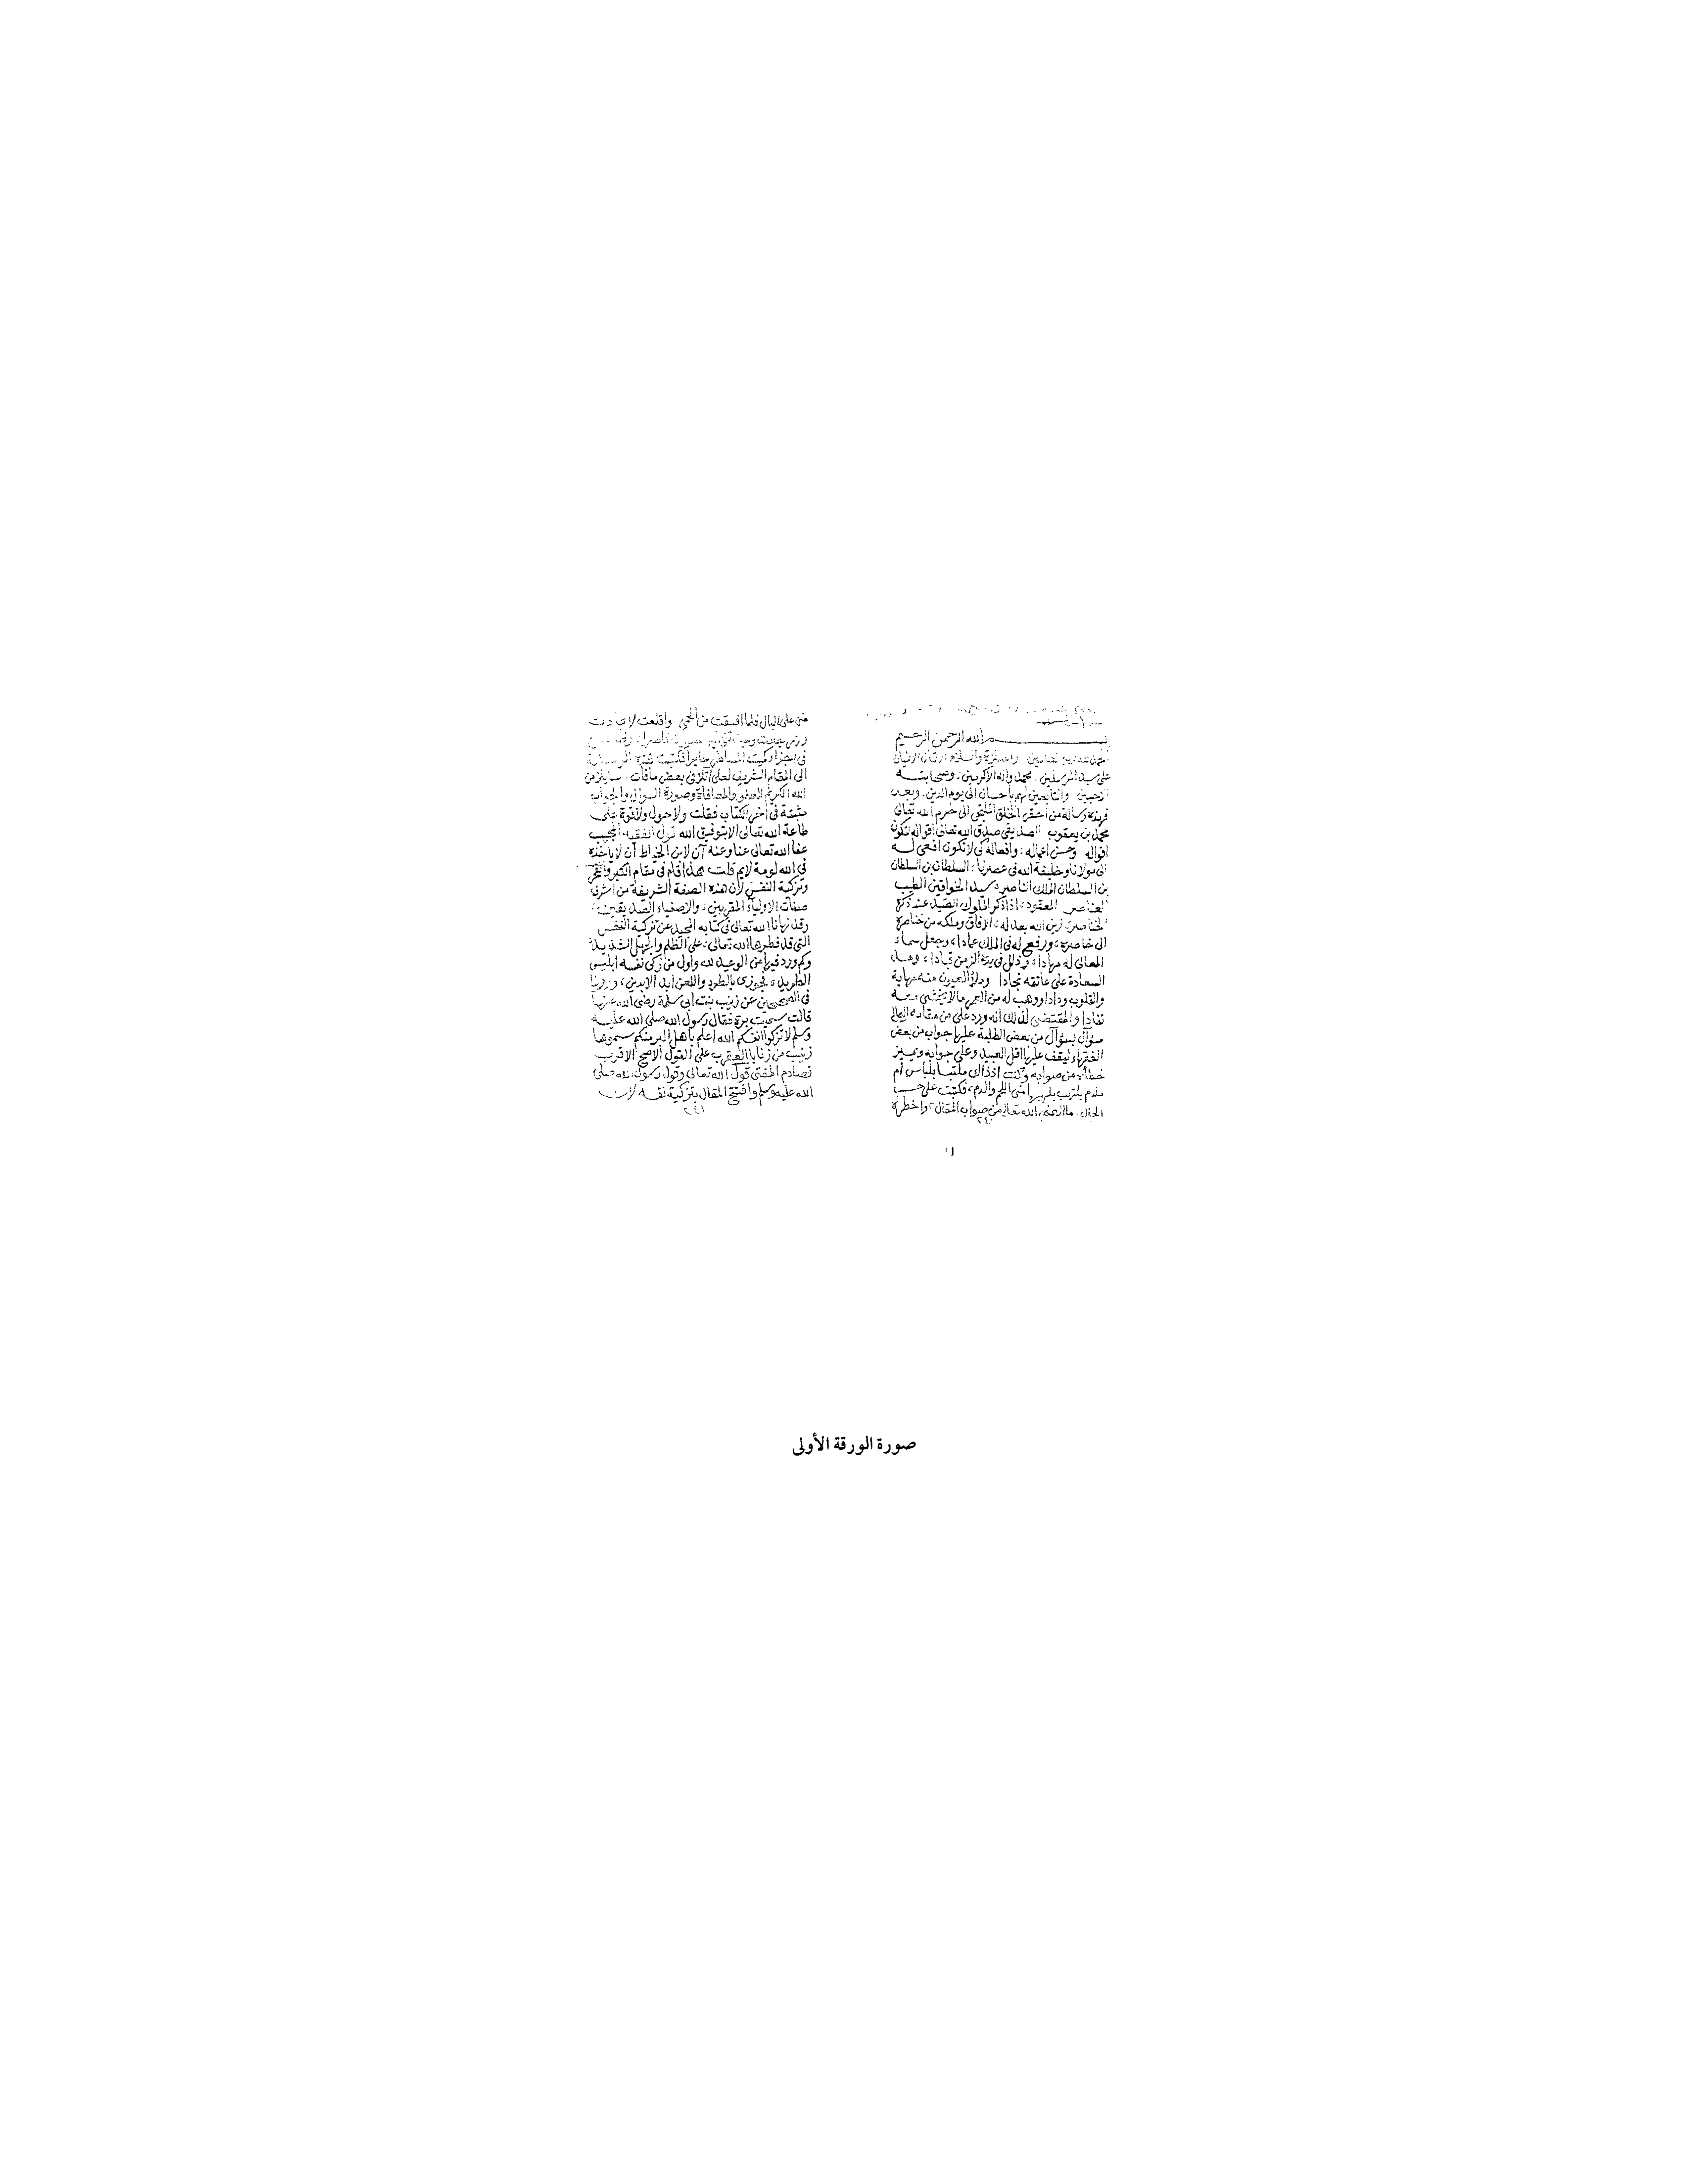 بسم الله الرحمن الرحيم
على سيد المرسلين محمد واله الاكرمين وصحابته
والتابعين لهم باحسان الى يوم الدين وبعد
فهذه رسالة من احقر الخلق الملتجى الى حرم الله تعالى
محمد بن يعقوب الصديقى صدق الله تعالى اقواله
اقواله وحسن اعماله وافعاله كى لا تكون افعى له
الى مولانا وخليفة الله فى عصرنا السلطان بن السلطان
بن السلطان الملك الناصر سيد الخواقين الطيب
العناصر المعقود اذا ذكر الملوك الصيد عند ذكره
الخناصر زين الله بعدله الافاق وملكه من خناصرة
الى خاصرة ورفع له فى الملك عمادا وجعل سماء
المعالى له مهادا وذلل فى يده الزمن قيادا
السعادة على عاتقه نجادا وملأ العيون منه مهابة
والقلوب ودادا ووهب له من العمر مالا يختشى معه
نفادا والمقتضى لذلك انه ورد على من مقامه العالى
سؤال بسؤال من بعض الطلبة عليها جواب من بعض
الفقهاء ليقف عليها اقل العبيد وعلى جوابه ويميز
خطأه من صوابه وكنت اذ ذاك ملتبسا بلباس أم
ملدم يلتهب بلهيبها منى اللحم والدم فكتبت على حسب
الحال ما الهمنى الله تعالى من صواب المقال واخطره
٢٤٠
منى على البال فلما افقت من الحمى واقلعت
الى المقام الشريف لعلى اتلافى بعض مافات سايلا من
الله الكريم العفو والمعافاة وصورة السوال والجواب
مثبتة فى آخر الكتاب فقلت ولا حول ولا قوة على
طاعة الله تعالى الا بتوفيق الله قول الفقيه المجيب
عفا الله تعالى عنا وعنه آن لابن الخياط أن لا ياخذه
فى الله لومة لايم قلت هذا قام فى مقام الكبر والفخر
وتزكية النفس لان هذه الصفة الشريفة من اشرف
صفات الاولياء المقربين والاصفياء الصديقين
وقد نهانا الله تعالى فى كتابه المجيد عن تزكية النفس
التى قد فطرها الله تعالى على الظلم والجهل الشديد
وكم ورد فيها من الوعيد واول من زكى نفسه ابليس
الطريد فجوزى بالطرد واللعن ابد الابدين وروينا
فى الصحيحين عن زينب بنت ابى سلمة رضى الله عنها
قالت سميت برة فقال رسول الله صلى الله عليه
وسلم لا تزكوا انفسكم الله اعلم باهل البر منكم سموها
زينب من زنابا العقرب على القول الاصح الاقرب
فصادم المفتى قول الله تعالى وقول رسول الله صلى
الله عليه وسلم وافتتح المقال بتزكية نفسه
٢٤١
صورة الورقة الأولى